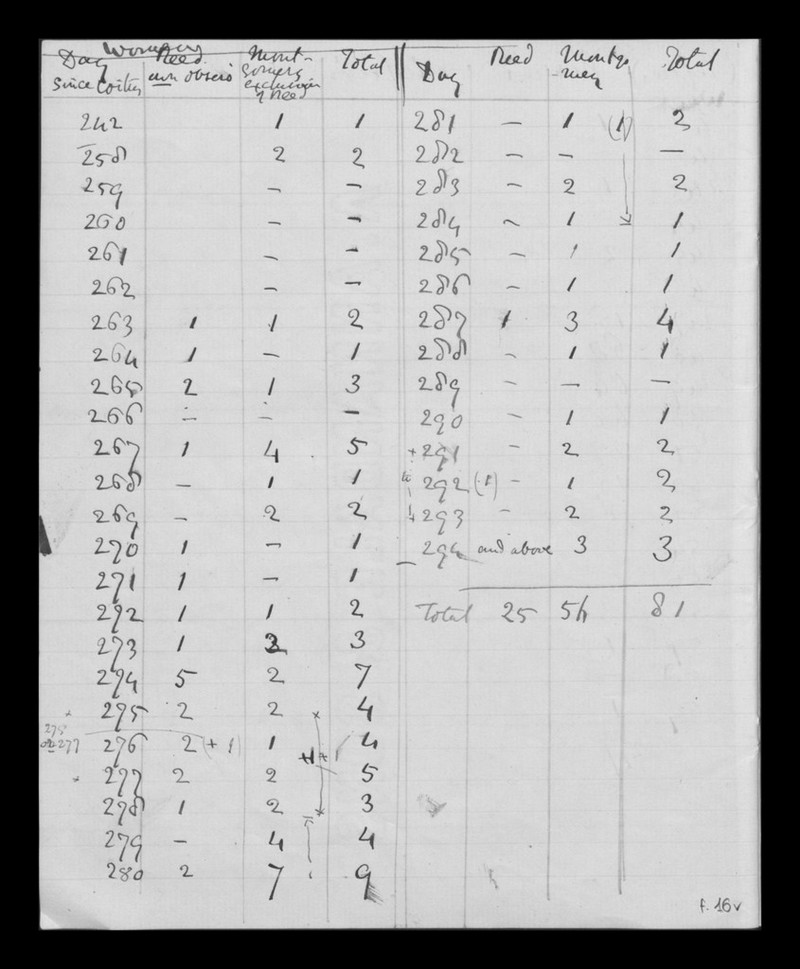 Women
Day Reed Mont- Total
since Coitus own observs gomery
exclusive
of Reed
242 1 1
258 2 2
259 - -
260 - -
261 - -
262 - -
263 1 1 2
264 1 - 1
265 2 1 3
266 - - -
267 1 4 5
268 - 1 1
269 - 2 2
270 1 - 1
271 1 - 1
272 1 1 2
273 1 2 3
274 5 2 7
275 2 2 4
275
or 277 276 2 (+ 1) 1 4
277 2 2 5
278 1 2 3
279 - 4 4
280 2 7 9
Day Reed Montgo Total
-mery
281 - 1 (1) 2
282 - - -
283 - 2 2
284 - 1 1
285 - 1 1
286 - 1 1
287 1 3 4
288 - 1 1
289 - - -
290 - 1 1
+ 291 - 2 2
to 292 (1) - 1 2
293 - 2 2
294 and above 3 3
Total 25 54 81
f. 16v